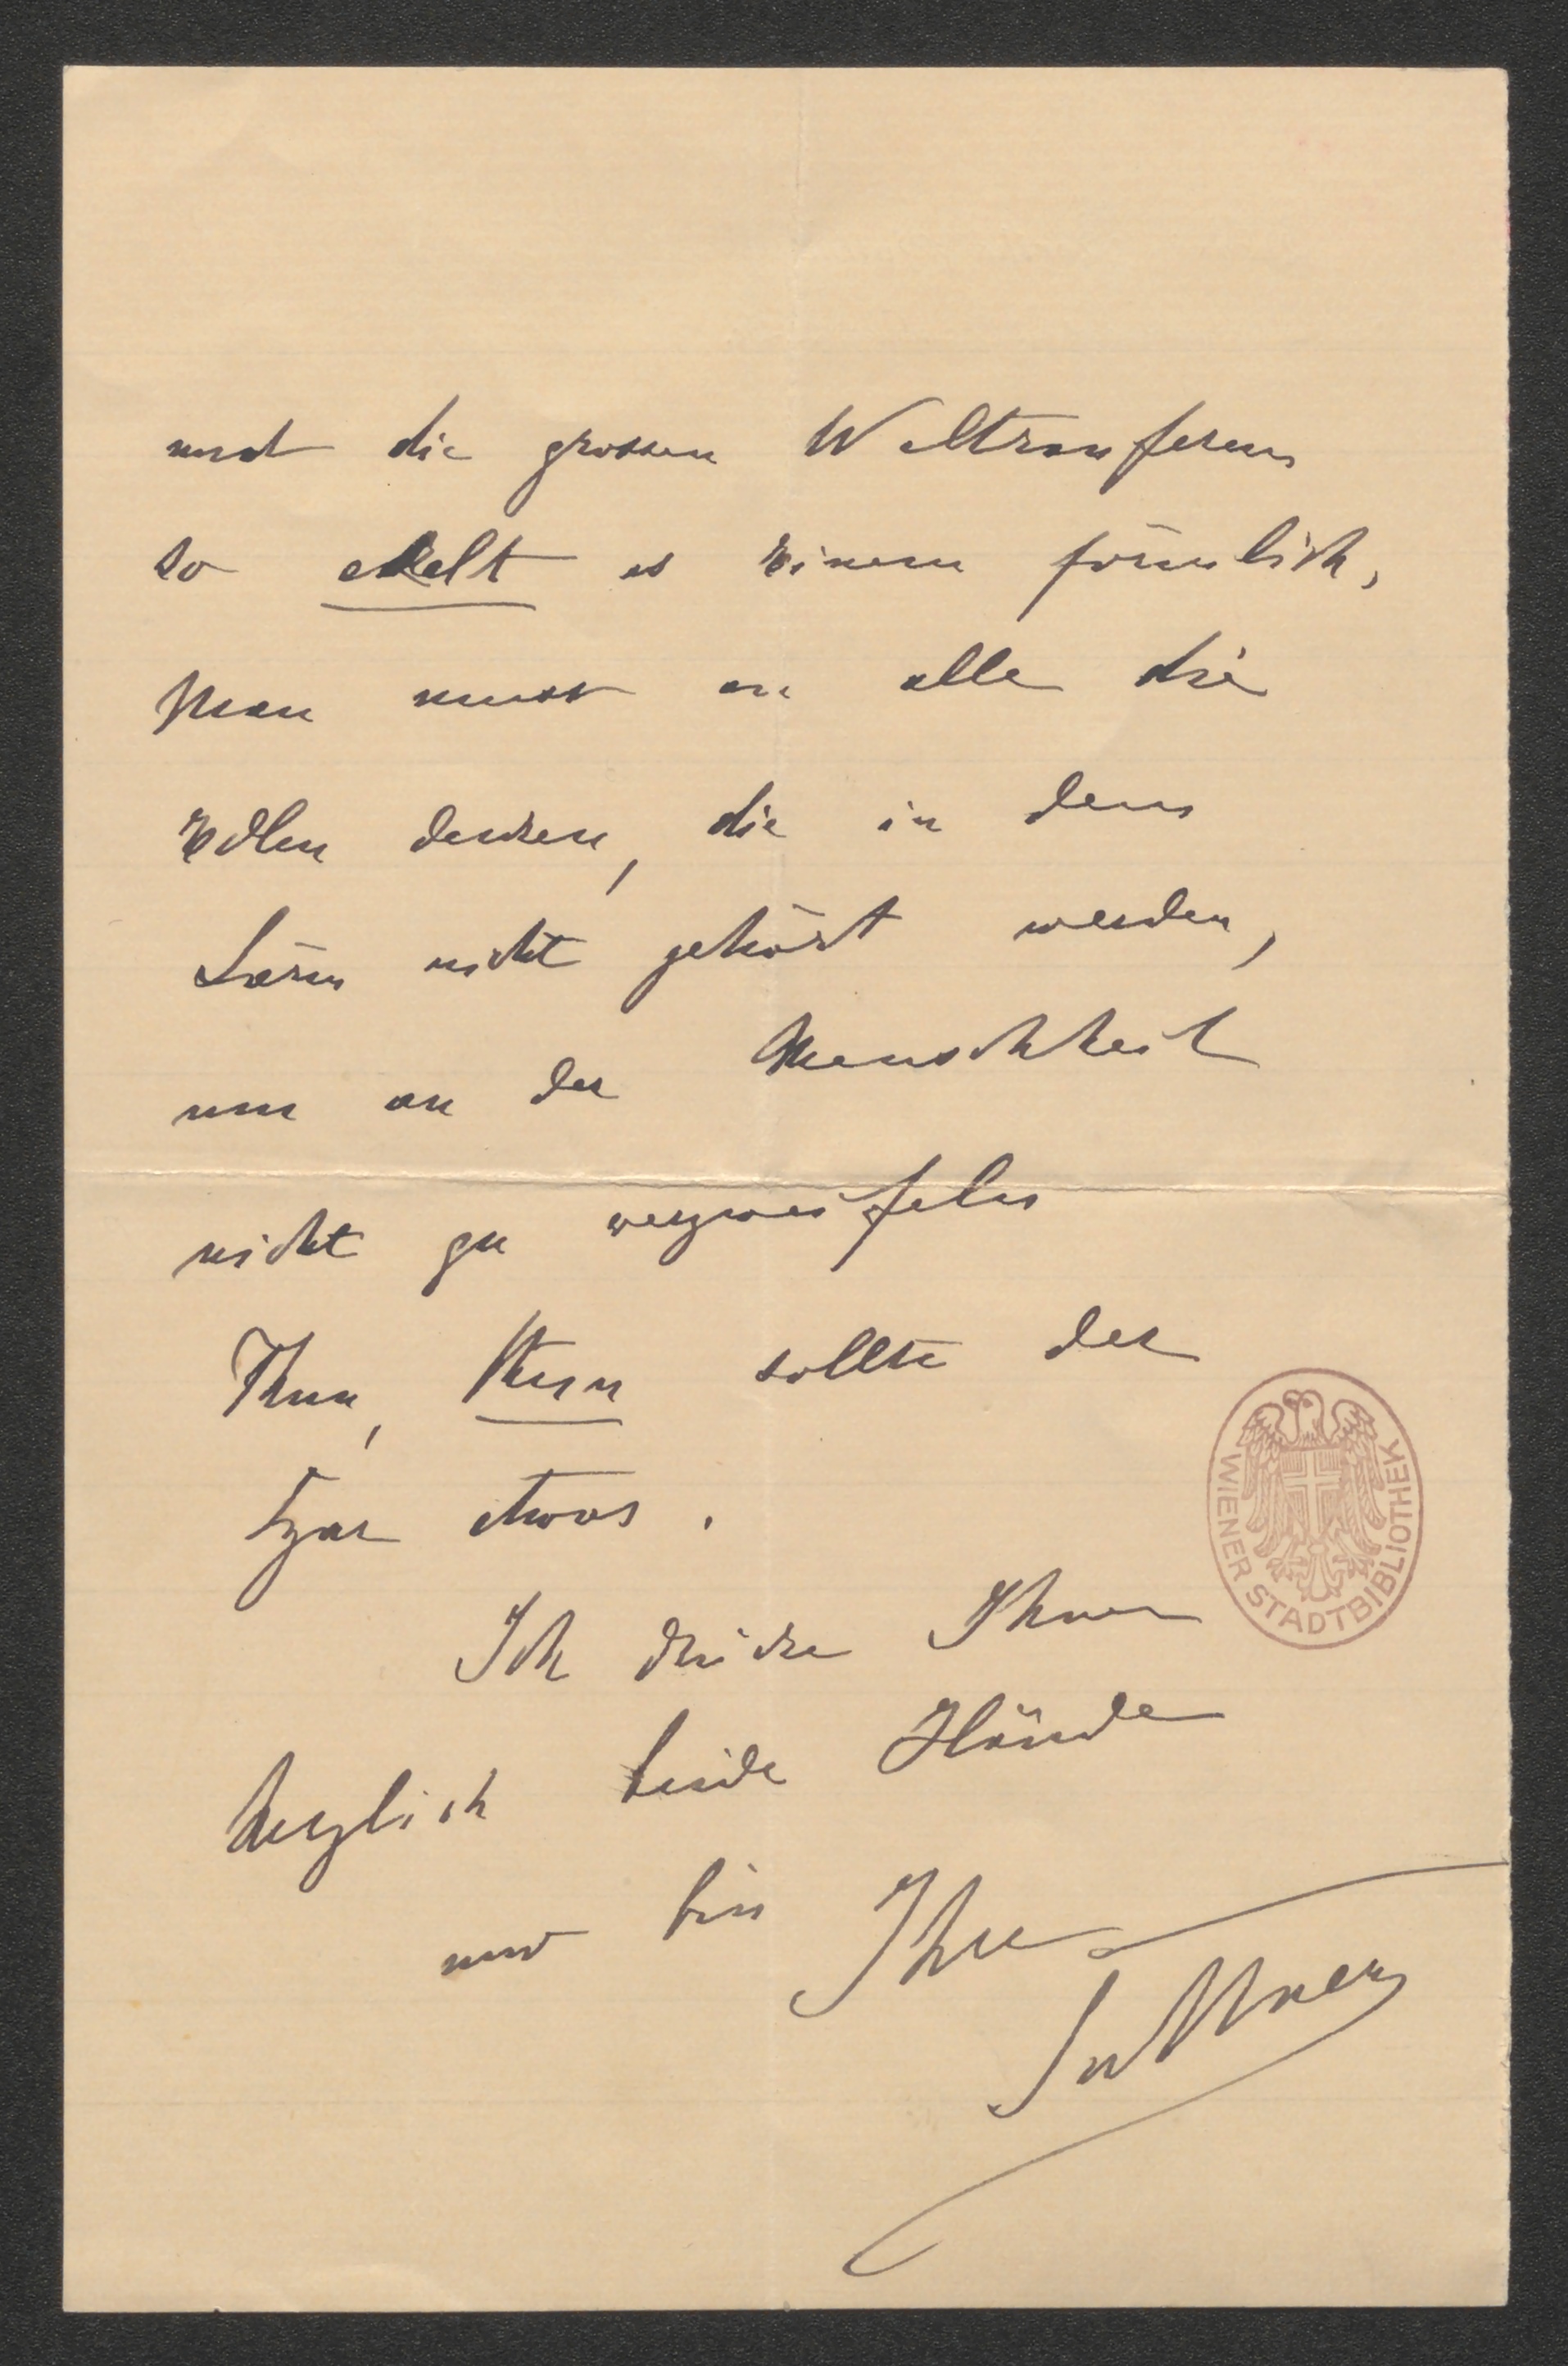 und die grossen Weltraufereien
so ekelt es Einem förmlich,
Man muss an alle die
Edlen denken, die in dem
Lärm nicht gehört werden,
um an der Menschheit
nicht zu verzweifeln
Thun, thun sollte der
Czar etwas.
Ich drücke Ihnen
herzlich beide Hände
und bin Ihre
Suttner
WIENER STADTBIBLIOTHEK